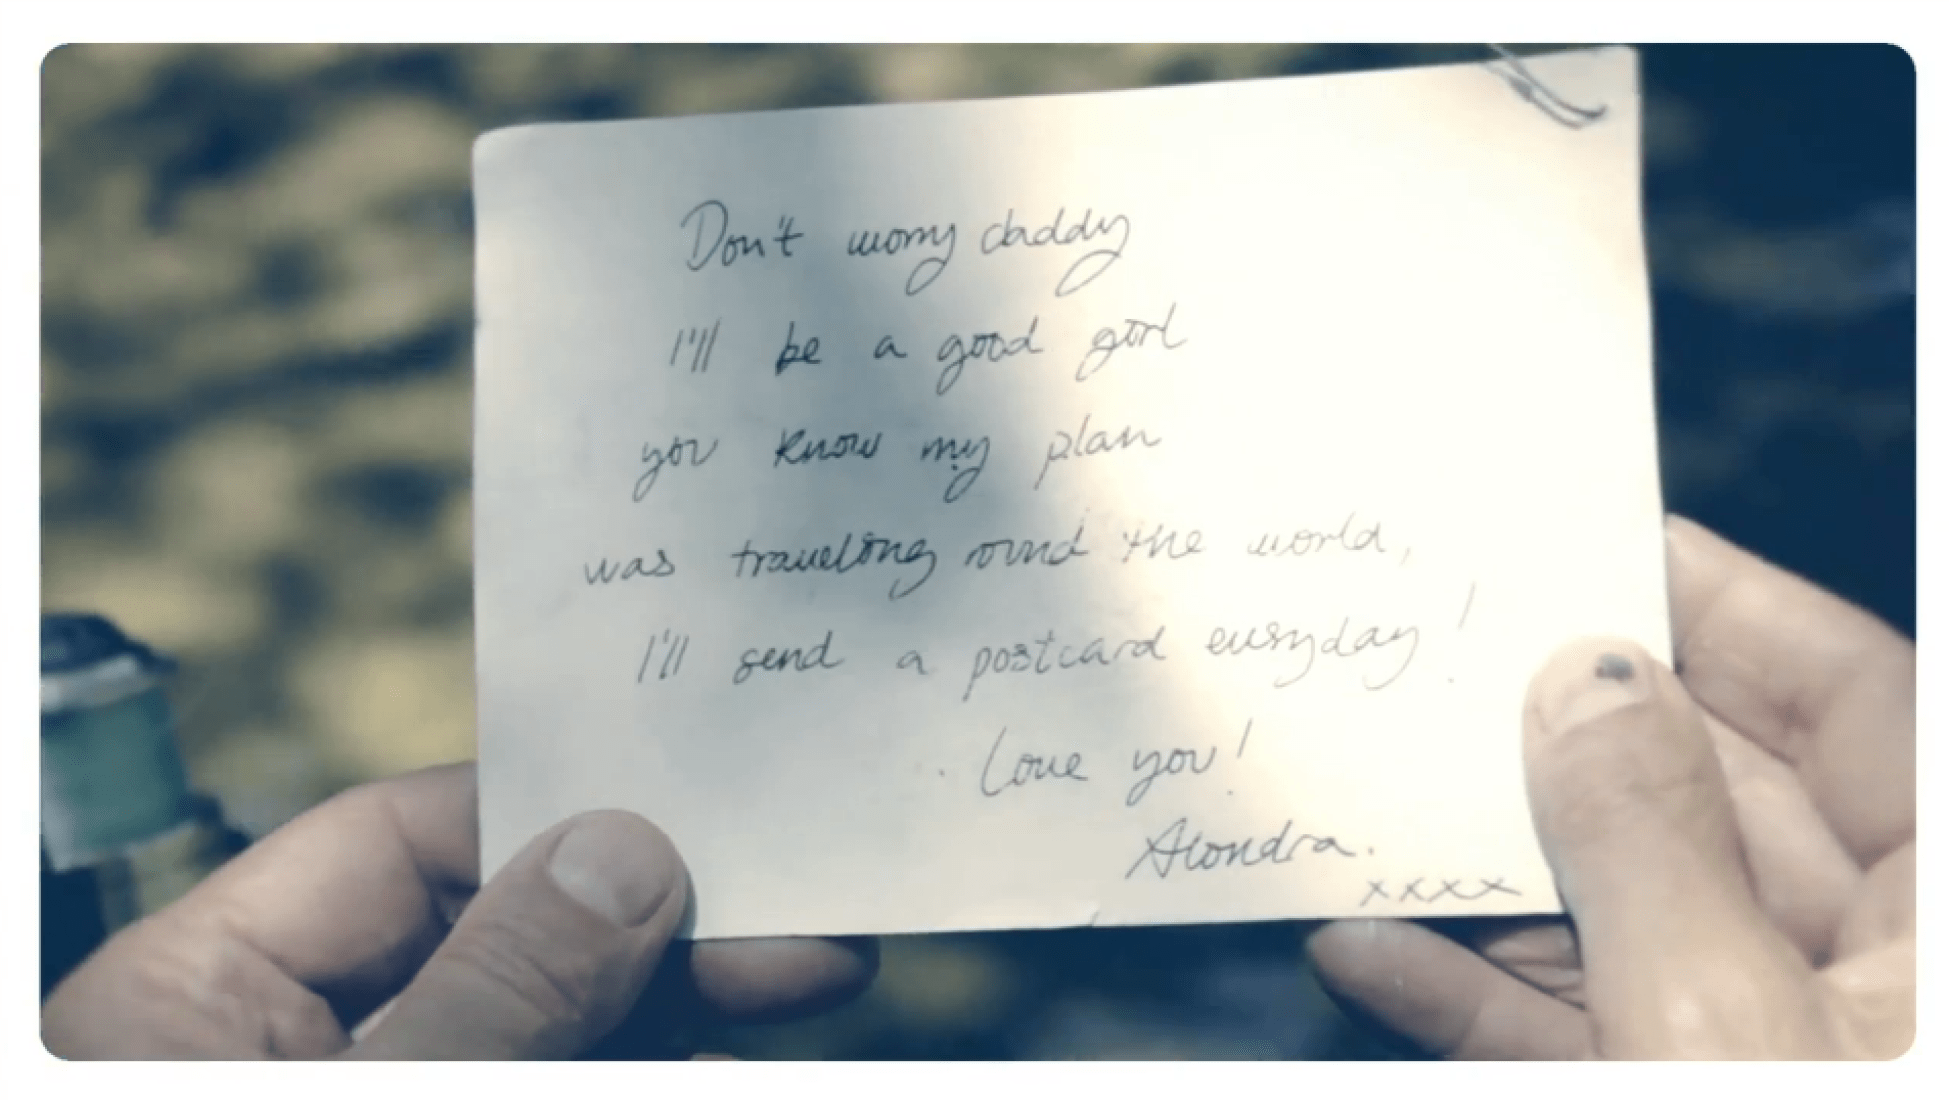 Don't worry daddy
I'll be a good girl
you know my plan
was traveling round the world,
I'll send a postcard everyday!
Love you!
Alondra.
xxxx